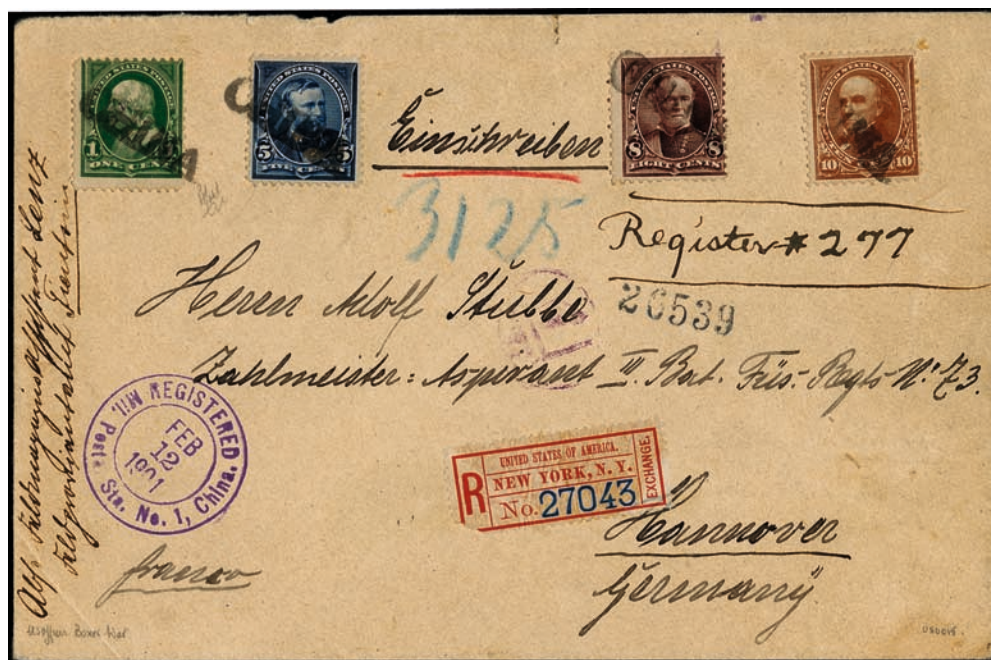 UNITED STATES POSTAGE
1
ONE CENT
UNITED STATES POSTAGE
5 5
FIVE CENTS
UNITED STATES POSTAGE
8 8
EIGHT CENTS
UNITED STATES POSTAGE
10 10
CHINA
CHINA
Einschreiben
3125
Register # 277
26539
Herrn Adolf Stubbe
Zahlmeister: Aspirant III. Bat. Füs: Regts N: 73.
MIL. REGISTERED
FEB
12
1901
Post. Sta. No. 1, China.
R
UNITED STATES OF AMERICA.
NEW YORK, N. Y.
No. 27043
EXCHANGE
Hannover
Germany
franco
Lenz
Tientsin
Boxer War